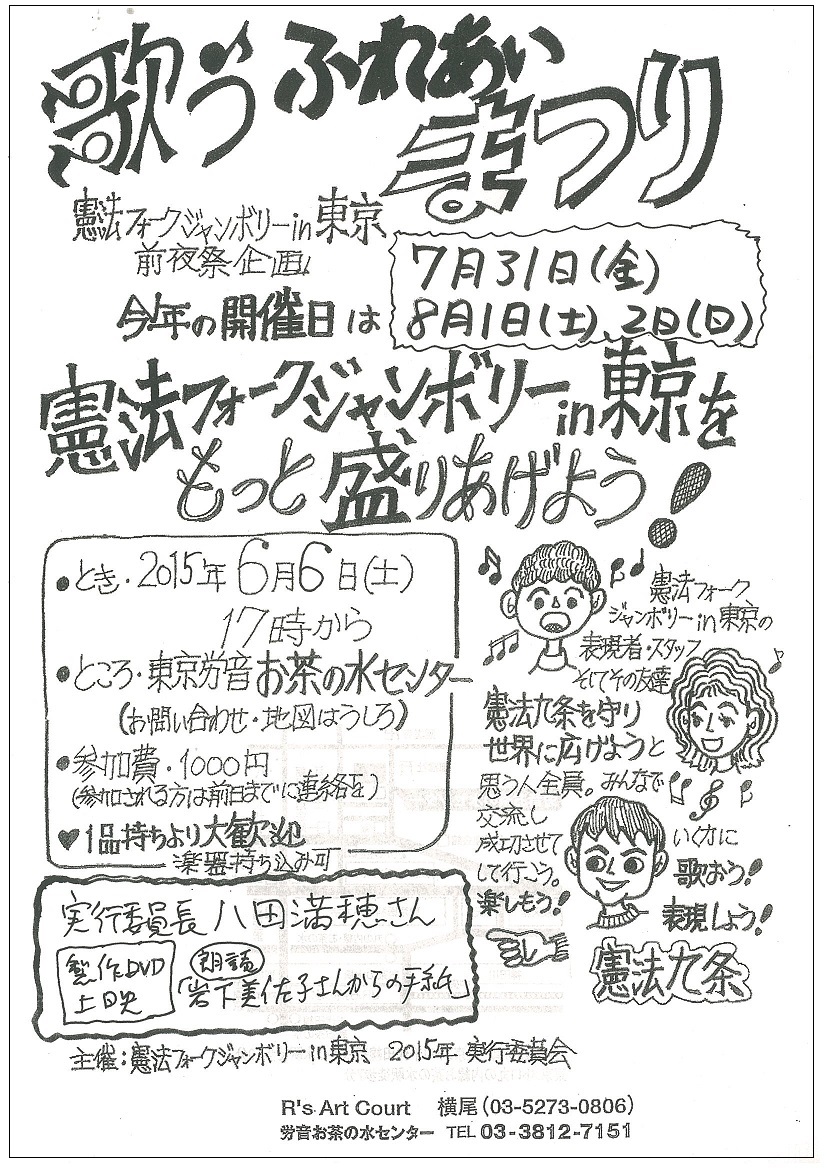 歌うふれあい
まつり
憲法フォークジャンボリーin東京
前夜祭企画
今年の開催日は
7月31日(金)
8月1日(土)、2日(日)
憲法フォークジャンボリーin東京を
もっと盛りあげよう!
●とき・2015年6月6日(土)
17時から
●ところ・東京労音お茶の水センター
(お問い合わせ・地図はうしろ)
●参加費・1000円
(参加される方は前日までに連絡を)
♥1品持ちより大歓迎
楽器持ち込み可
憲法フォーク
ジャンボリーin東京の
表現者・スタッフ
そしてその友達
憲法九条を守り
世界に広げようと
思う人全員。みんなで
交流し
成功させて
して行こう。
楽しもう!
いく方に
歌おう!
表現しよう!
憲法九条
実行委員長 八田満穂さん
製作DVD
上映
朗読
「岩下美佐子さんからの手紙」
主催:憲法フォークジャンボリーin東京 2015年 実行委員会
R's Art Court 横尾(03-5273-0806)
労音お茶の水センター TEL 03-3812-7151